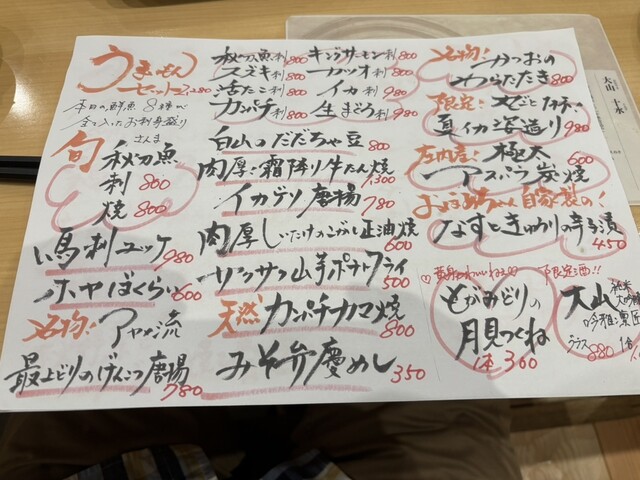 うまいもん
セット 2,280
本日の鮮魚 8種が
全て入ったお刺身盛り
旬 さんま
秋刀魚
刺 800
焼 800
馬刺ユッケ 980
ホヤばくらい 600
名物! アヤメ流
最上どりのげんこつ唐揚 780
秋刀魚刺 800
スズキ刺 800
活たこ刺 800
カンパチ刺 800
キングサーモン刺 800
カツオ刺 800
イカ刺 980
生まぐろ刺 980
白山のだだちゃ豆 800
肉厚!霜降り牛たん焼 1,300
イカゲソ唐揚 780
肉厚しいたけのこがし正油焼 600
サクサク山芋ポテトフライ 500
天然カンパチカマ焼 800
みそ弁慶めし 350
名物! かつおの
わらだたき 800
限定!
真イカ姿造り 980
庄内産! 極太
アスパラ炭焼 600
おばあちゃん自家製の!
なすときゅうりの辛子漬 450
もがみどりの
月見つくね
1本 360
限定酒!!
大山 純米
大吟醸
グラス 880
大山 十水